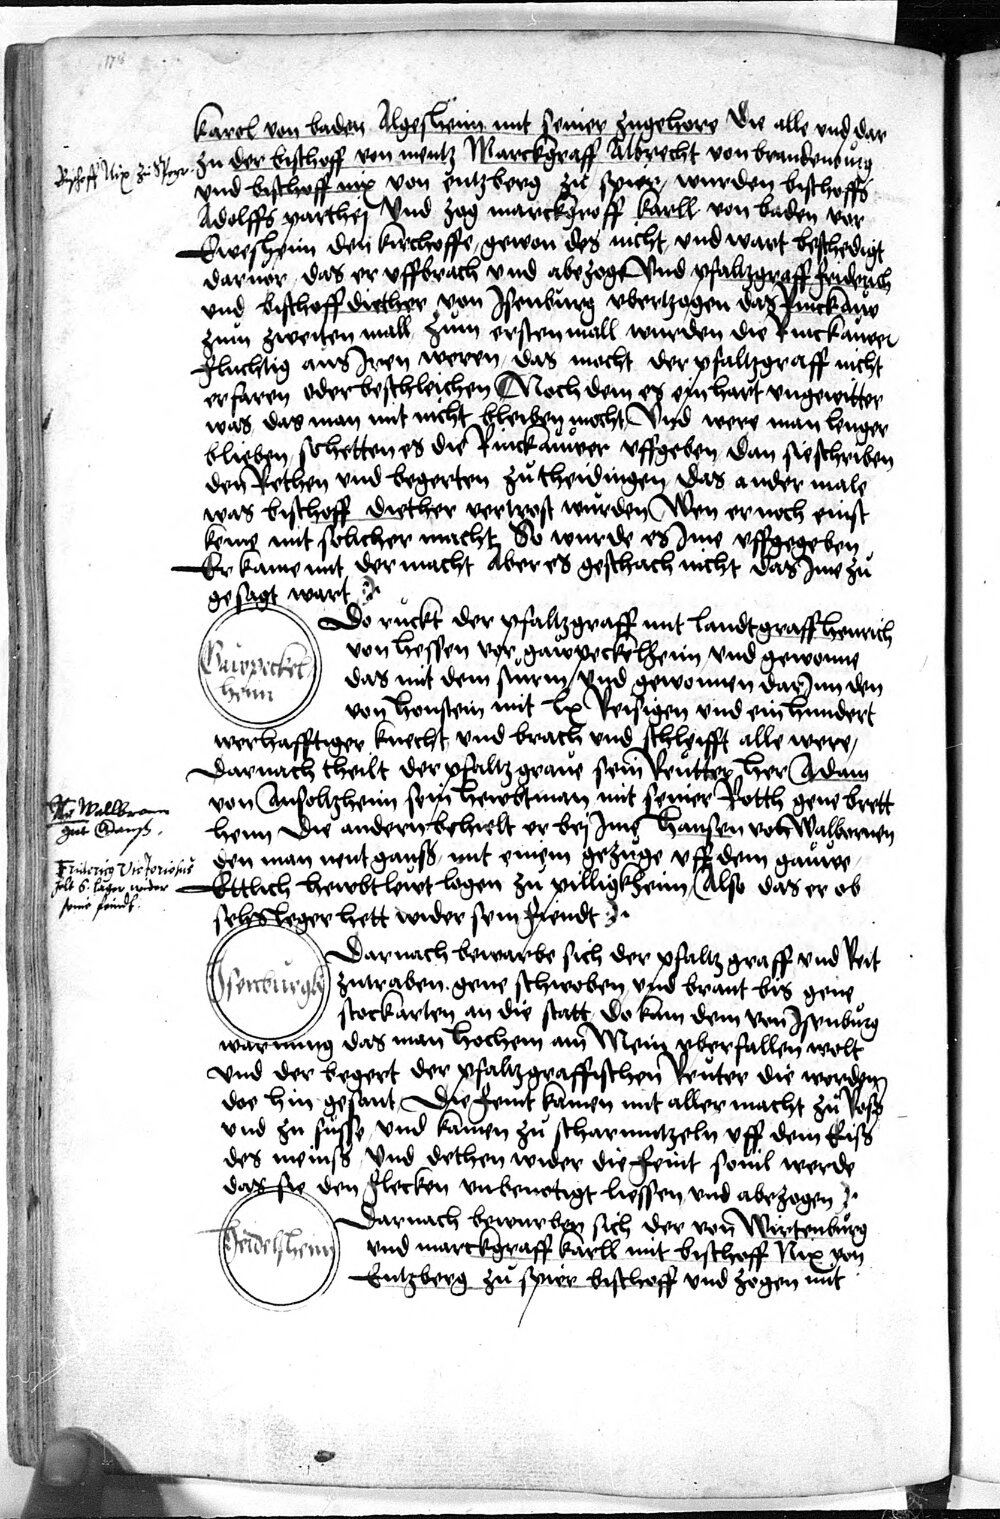 karel von baden Algesheim mit seiner zugehore Die alle und dar
zu der bischoff von mentz Marckgraff Albrecht von brandenburg
Bischoff Nix zu Speyr
und bischoff nix von entzberg zu spier, wurden bischoffs
Adolffs parthej Und zog marckgroff karll von baden vor
Ewesheim den kirchoffe, gewon des nicht und wart beschedigt
darvor, das er uffbrach und abezoge Und pfaltzgraff friderich
und bischoff diether von Isenburg ubertzogen das Rinckauw
zum zweiten mall, zum ersten mall wurden die Rinckauwer
fluchtig aus Iren weren, das mocht der pfaltzgraff nicht
erfaren oder beschleichen Noch dem es ein hart ungewitter
was das man mit nicht bleiben mocht Und were man lenger
blieben, so hetten es die Rinckauwer uffgeben dan sie schriben
den Rethen und begerten zu theidingen das ander male
was bischoff diether vertrost wurden Wen er noch einst
keme mit solicher macht, So wurde es Ime uffgegeben
Er kame mit der macht Aber es geschach nicht das Ime zu
gesagt wart
Gauwpeckel
heim
Do ruckt der pfaltzgraff mit landtgraff henrich
von hessen vor gauwpeckelheim, und gewonne
das mit dem sturm, Und gewonnen dar Inn den
von honstein mit lx Reisigen und ein hundert
werhafftiger knecht, und brach und schleifft alle were,
Darnach theilt der pfaltzgrave sein Reutter, her Adam
von Ansoltzheim sein hewbtman mit seiner Rotth gene brett
Hr Wallbronn
gnt Ganß.
henn Die andern behielt er bej Ime hansen von Walbornen
den man nent gansß, mit einem gezuge uff dem gauwe,
Fridericus Victoriosus
helt 6. läger wider
seine feindt.
Ettlich hewbt lewt lagen zu pilligkheim, Also das er ob
sechs leger hett wider sein fiendt
Isenburgk
Darnach bewarbe sich der pfaltzgraff und Reit
zutraben gene schwoben und brant bis gene
stockarten an die statt, Do kam dem von Isenburg
warnung das man hochem am Mein uberfallen wolt
und der begert der pfaltzgraffischen Reuter die worden
doe hin gesant Die feint kamen mit aller macht zu Ross
und zu fusse und kamen zu scharmutzeln uff dem Eiss
des meinss Und dethen wider die feint sovil werde
das sie den flecken unbenotigt liessen und abezogen
Heidelsheim
Darnach bewurben sich der von Wirtenburg
und marckgraff karll mit bischoff Nix von
Entzberg zu spier bischoff und zogen mit